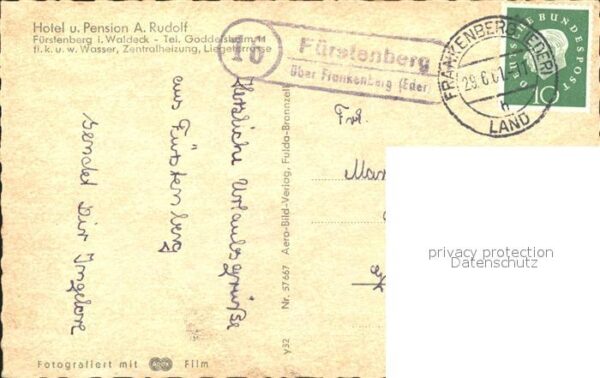 Hotel u. Pension A. Rudolf
Fürstenberg i. Waldeck - Tel. Goddelsheim 11
fl. k. u. w. Wasser, Zentralheizung, Liegeterrasse
16
Fürstenberg
über Frankenberg (Eder)
FRANKENBERG (EDER)
29.6.61
h
LAND
DEUTSCHE BUNDESPOST
10
Herzliche Urlaubsgrüße
aus Fürstenberg
sendet Dir Ingelore
y32 Nr. 57667 Aero-Bild-Verlag, Fulda-Bronnzell
Frl.
privacy protection
Datenschutz
Fotografiert mit ADOX Film